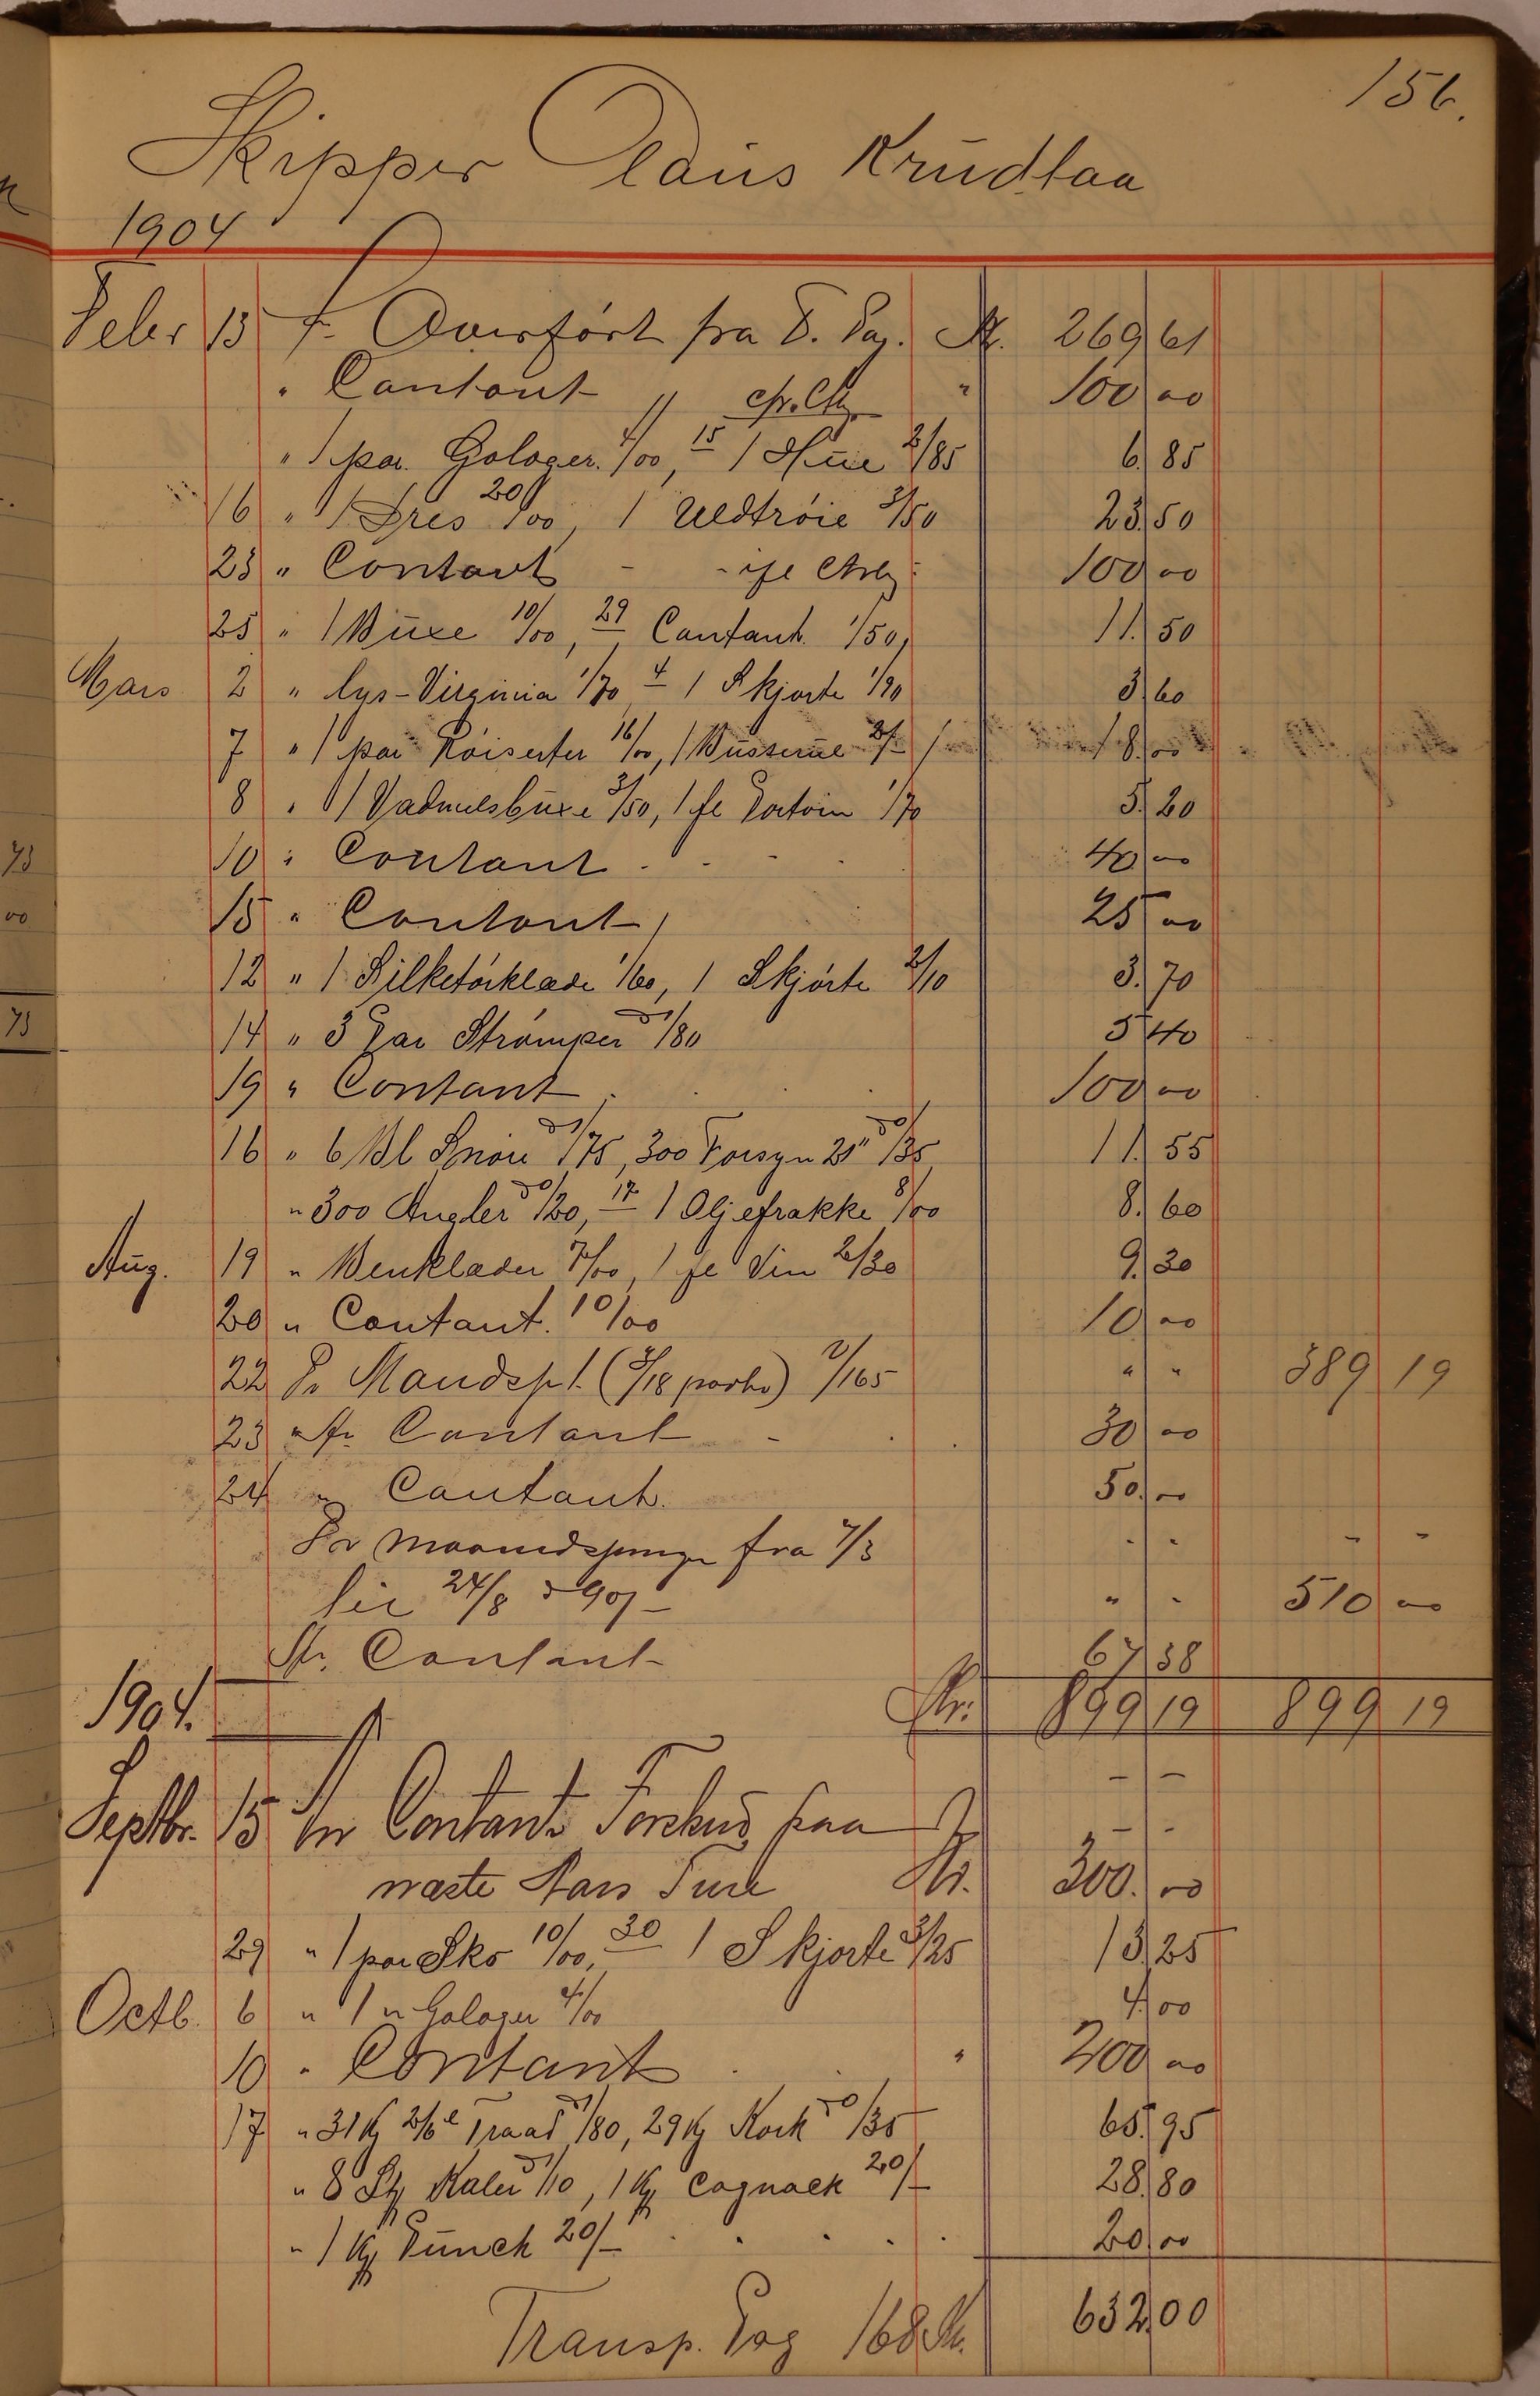 156.
Skipper Claus Krudtaa
1904
Febr 13 Overført fra F. Pag. Kr. 269 61
" Contant " 100 00
" 1 par Galoger 4/00, 15 1 Hue 2/85 6. 85
16 " 1 Dres 20/00, 1 Uldtrøie 3/50 23. 50
23 " Contant 100 00
25 " 1 Buxe 10/00, 29 Contant 1/50 11. 50
Mars 2 " lys-Virginia 1/70 4 1 Skjorte 1/90 3. 60
7 " 1 par Røiserter 16/00, 1 Busserul 2/- 18. 00
8 " 1 Vadmelsbuxe 3/50, 1 fl Portvin 1/70 5. 20
10 " Contant 40. 00
15 " Contant 25 00
12 " 1 Silketørklæde 1/60, 1 Skjorte 2/10 3. 70
14 " 3 Par Strømper à 1/80 5 40
19 " Contant 100 00
16 " 6 Bl Snøre à 1/75, 300 Forsyn 21" à 0/35 11. 55
" 300 Angler à 0/20, 17 1 Oljefrakke 8/00 8. 60
Aug. 19 " Benklæder 7/00, 1 fl Vin 2/30 9. 30
20 " Contant. 10/00 10. 00
22 Pr Mandspt. (3/18 parts) 1/165 " " 389 19
23 " Kr. Contant 30 00
24 " Contant. 50. 00
Pr Maanedspenge fra 7/3 - - - -
til 24/8 à 90/- " - 510 00
Kr. Contant 67 38
Kr. 899 19 899 19
1904. - -
Septbr. 15 Contant Forskud paa - -
næste Aars Ture Kr. 300. 00
29 " 1 par Sko 10/00, 30 1 Skjorte 3/25 13. 25
Octb. 6 " 1 " Galoger 4/00 4. 00
10 " Contant " 200 00
17 " 31 Kg 2/6 Traad à 1/80, 29 Kg Kork à 0/35 65. 95
" 8 Stk Kaler à 1/10, 1 Kg Cognack 20/- 28. 80
" 1 Kg Punch 20/- 20. 00
Transp. Pag 168 Kr. 632. 00
73
00
73